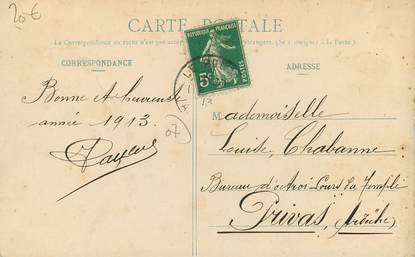 20€
CARTE POSTALE
La Correspondance au recto n'est pas acceptée étrangers. (Se renseigner à la Poste).
CORRESPONDANCE
ADRESSE
RÉPUBLIQUE FRANÇAISE
5c
POSTES
Bonne et heureuse
année 1913.
07
Mademoiselle
Louise Chabanne
Bureau d'octroi Cours du Temple
Privas, (Ardèche)